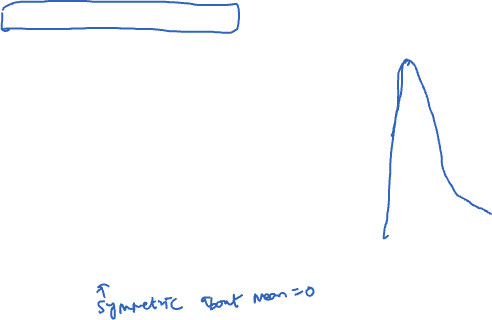 symmetric about mean = 0